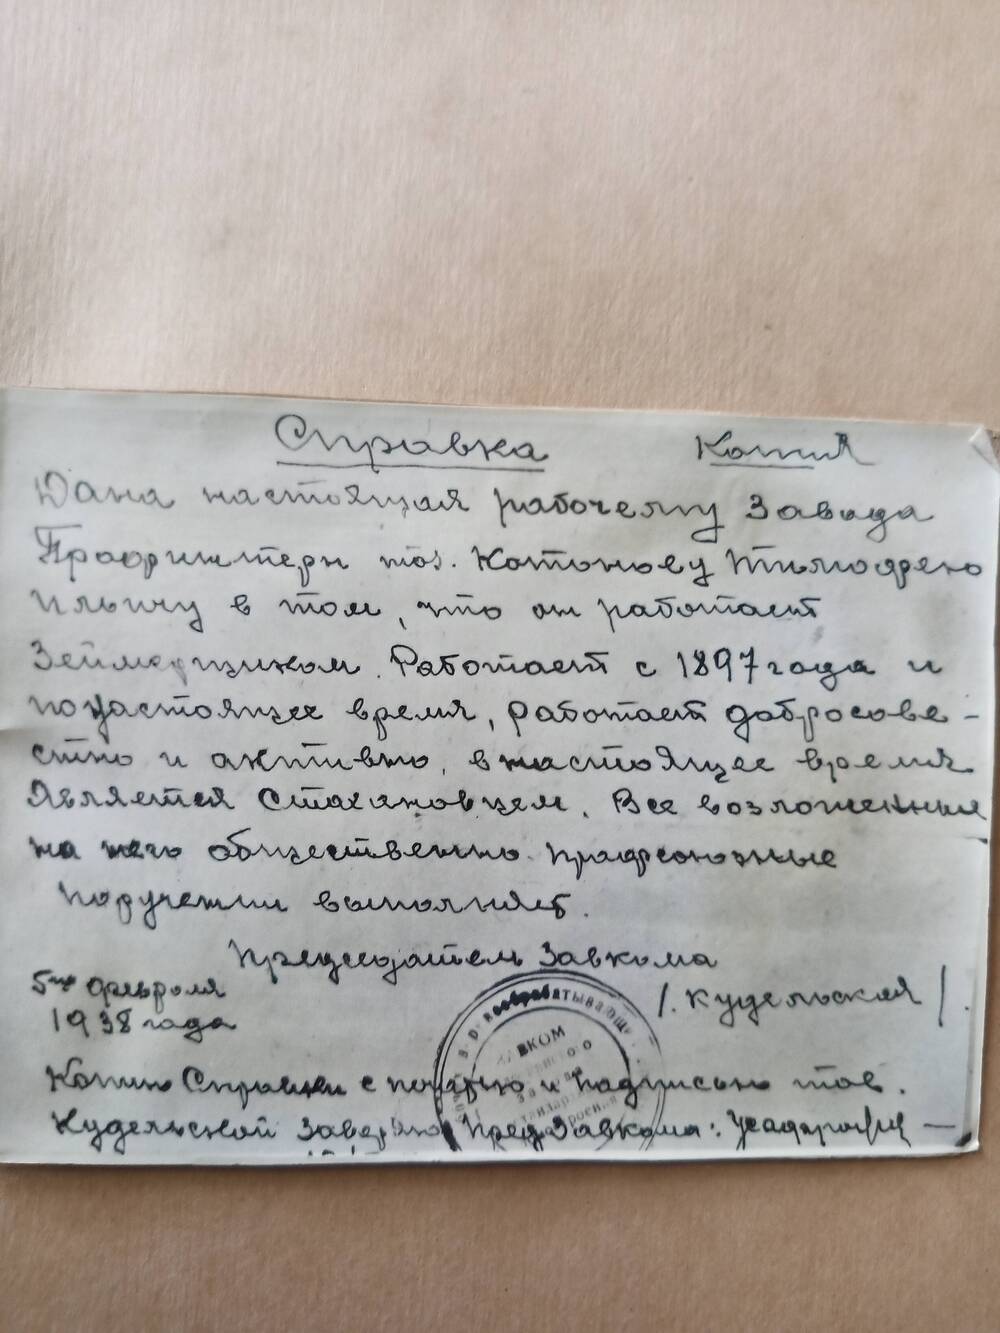 Справка Копия
Дана настоящая рабочему Завода
Профинтерн тов. Котонову Тимофею
Ильичу в том, что он работает
Зеймерщиком. Работает с 1897 года и
по настоящее время, работает добросове-
стно и активно, в настоящее время
является Стахановцем. Все возложенные
на него общественно профсоюзные
поручении выполняет.
Председатель Завкома
5го февроля /. Кудельская /.
1938 года
Копию Справки с печатью и подписью тов.
Кудельской Заверяю ПредЗавкома:
обрабатывающ
ЗАВКОМ